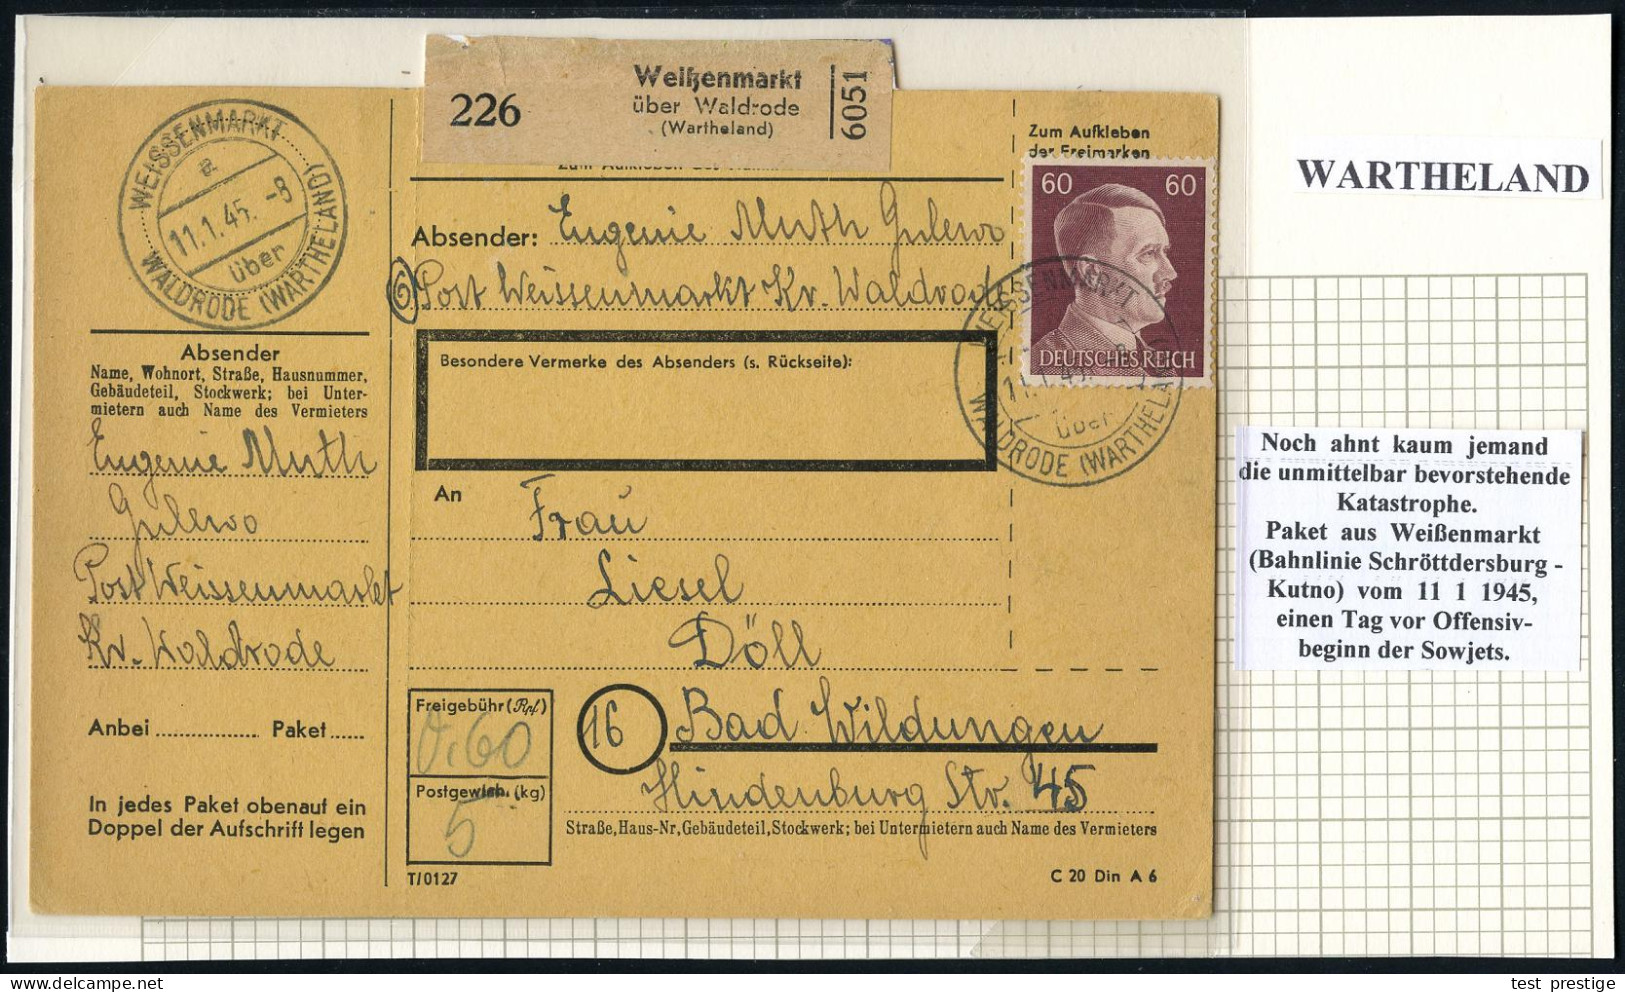 WEISSENMARKT
a
11.1.45.-8
über
WALDRODE (WARTHELAND)
Absender
Name, Wohnort, Straße, Hausnummer,
Gebäudeteil, Stockwerk; bei Unter-
mietern auch Name des Vermieters
Eugenie Muth
Gulewo
Post Weissenmarkt
Kr. Waldrode
Anbei ............... Paket ......
In jedes Paket obenauf ein
Doppel der Aufschrift legen
226
Weißenmarkt
über Waldrode
(Wartheland)
6051
Zum Aufkleben
der Freimarken
60 60
DEUTSCHES REICH
Absender: Eugenie Muth Gulewo
6 Post Weissenmarkt Kr. Waldrode
WEISSENMARKT
11.1.45.
über
WALDRODE (WARTHELAND)
Besondere Vermerke des Absenders (s. Rückseite):
An
Frau
Liesel
Döll
16 Bad Wildungen
Hindenburg Str. 45
Straße, Haus-Nr, Gebäudeteil, Stockwerk; bei Untermietern auch Name des Vermieters
Freigebühr (Rpf)
0.60
Postgewich. (kg)
5
T/0127
C 20 Din A 6
WARTHELAND
Noch ahnt kaum jemand
die unmittelbar bevorstehende
Katastrophe.
Paket aus Weißenmarkt
(Bahnlinie Schröttdersburg -
Kutno) vom 11 1 1945,
einen Tag vor Offensiv-
beginn der Sowjets.
test prestige